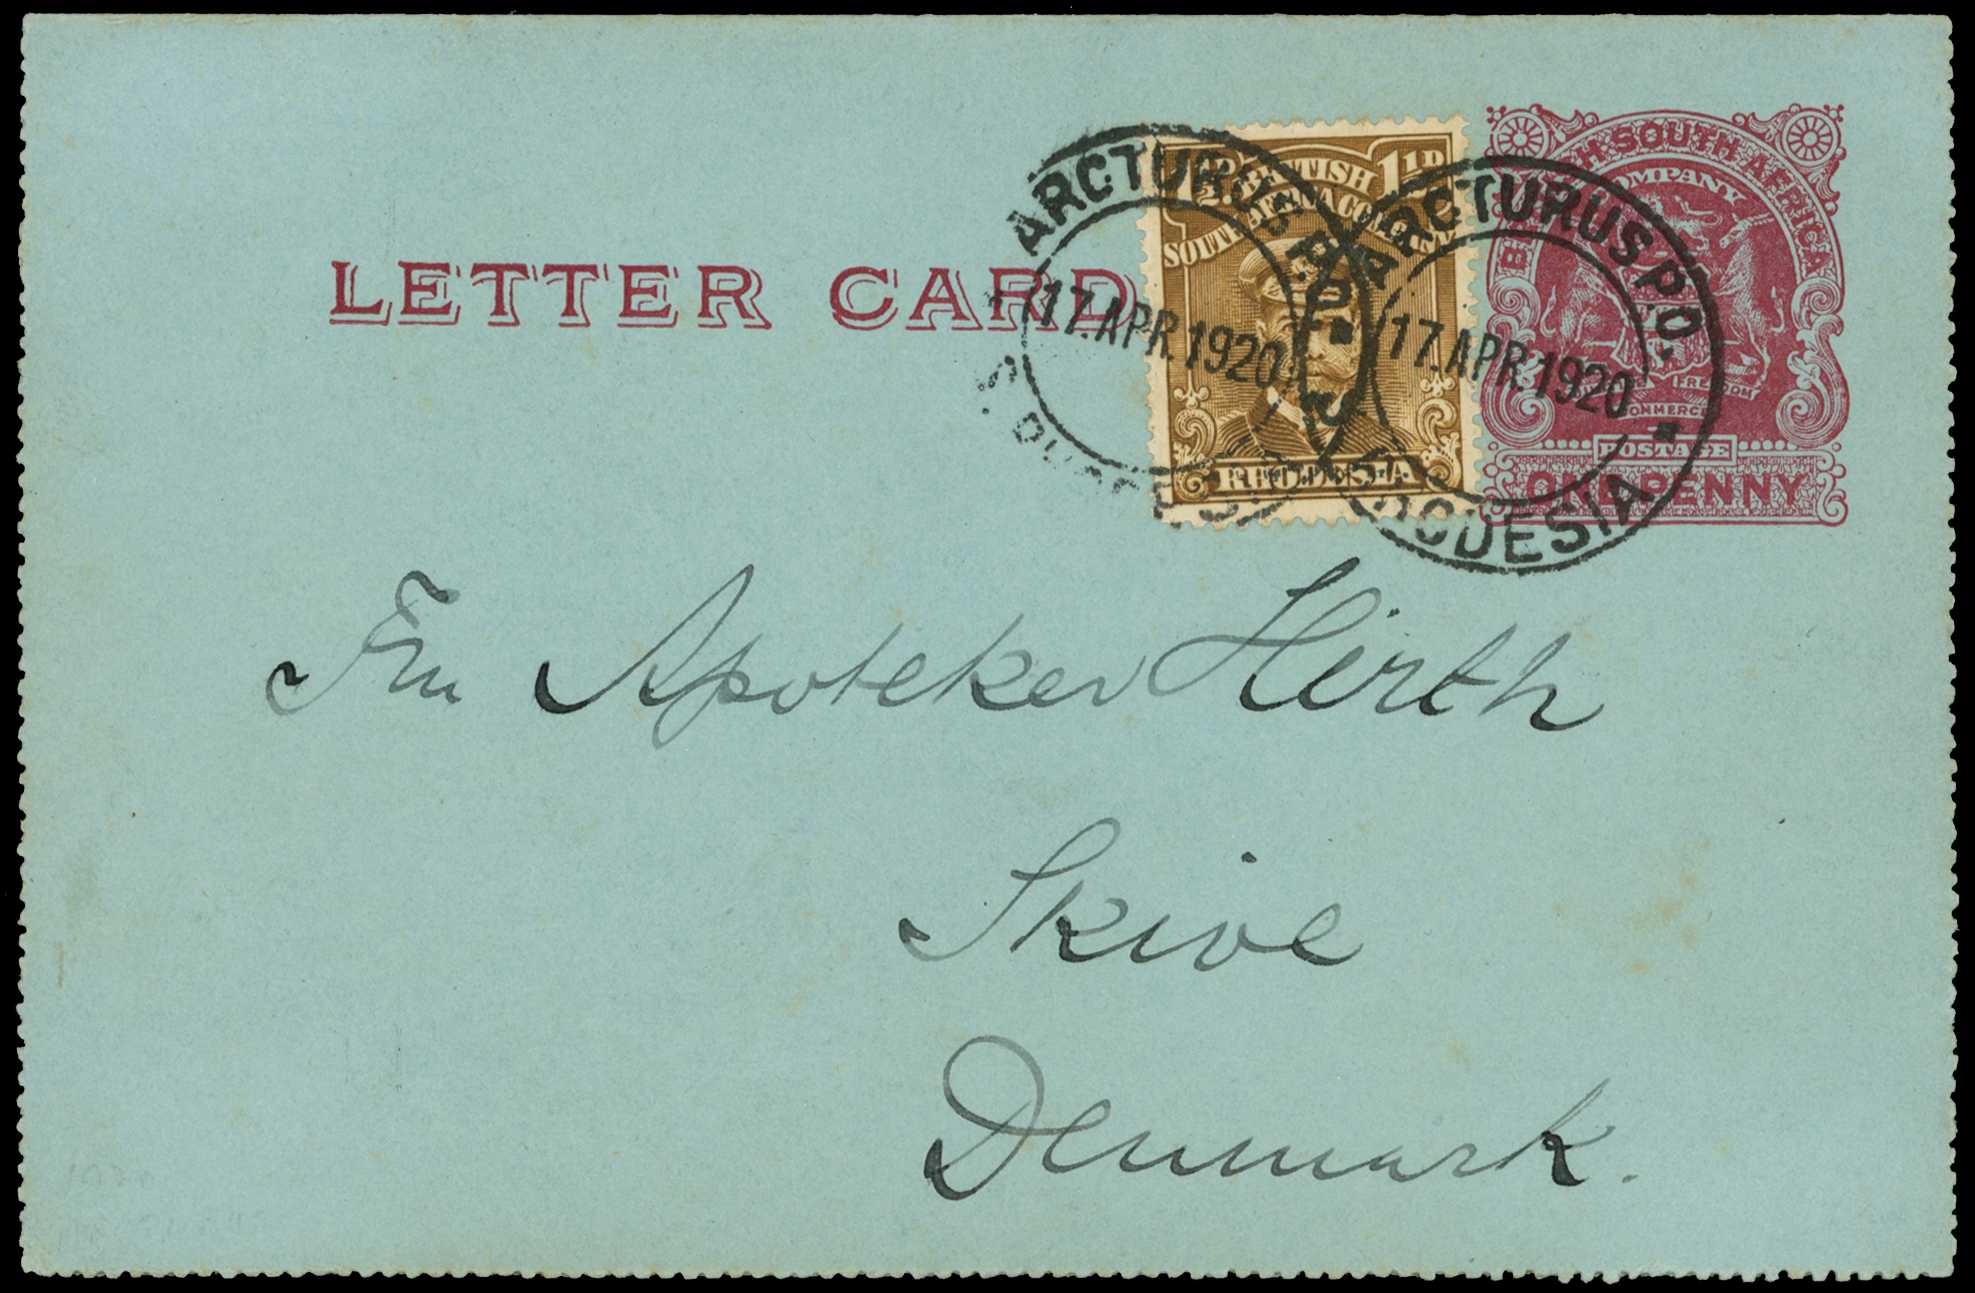 LETTER CARD
1½D. BRITISH 1½D
SOUTH AFRICA COMPANY
RHODESIA
ARCTURUS P.O.
17.APR.1920
S. RHODESIA
ARCTURUS P.O.
17.APR.1920
RHODESIA
BRITISH SOUTH AFRICA
COMPANY
COMMERCE FREEDOM
POSTAGE
ONE PENNY
Fru Apoteker Hirth
Skive
Denmark.